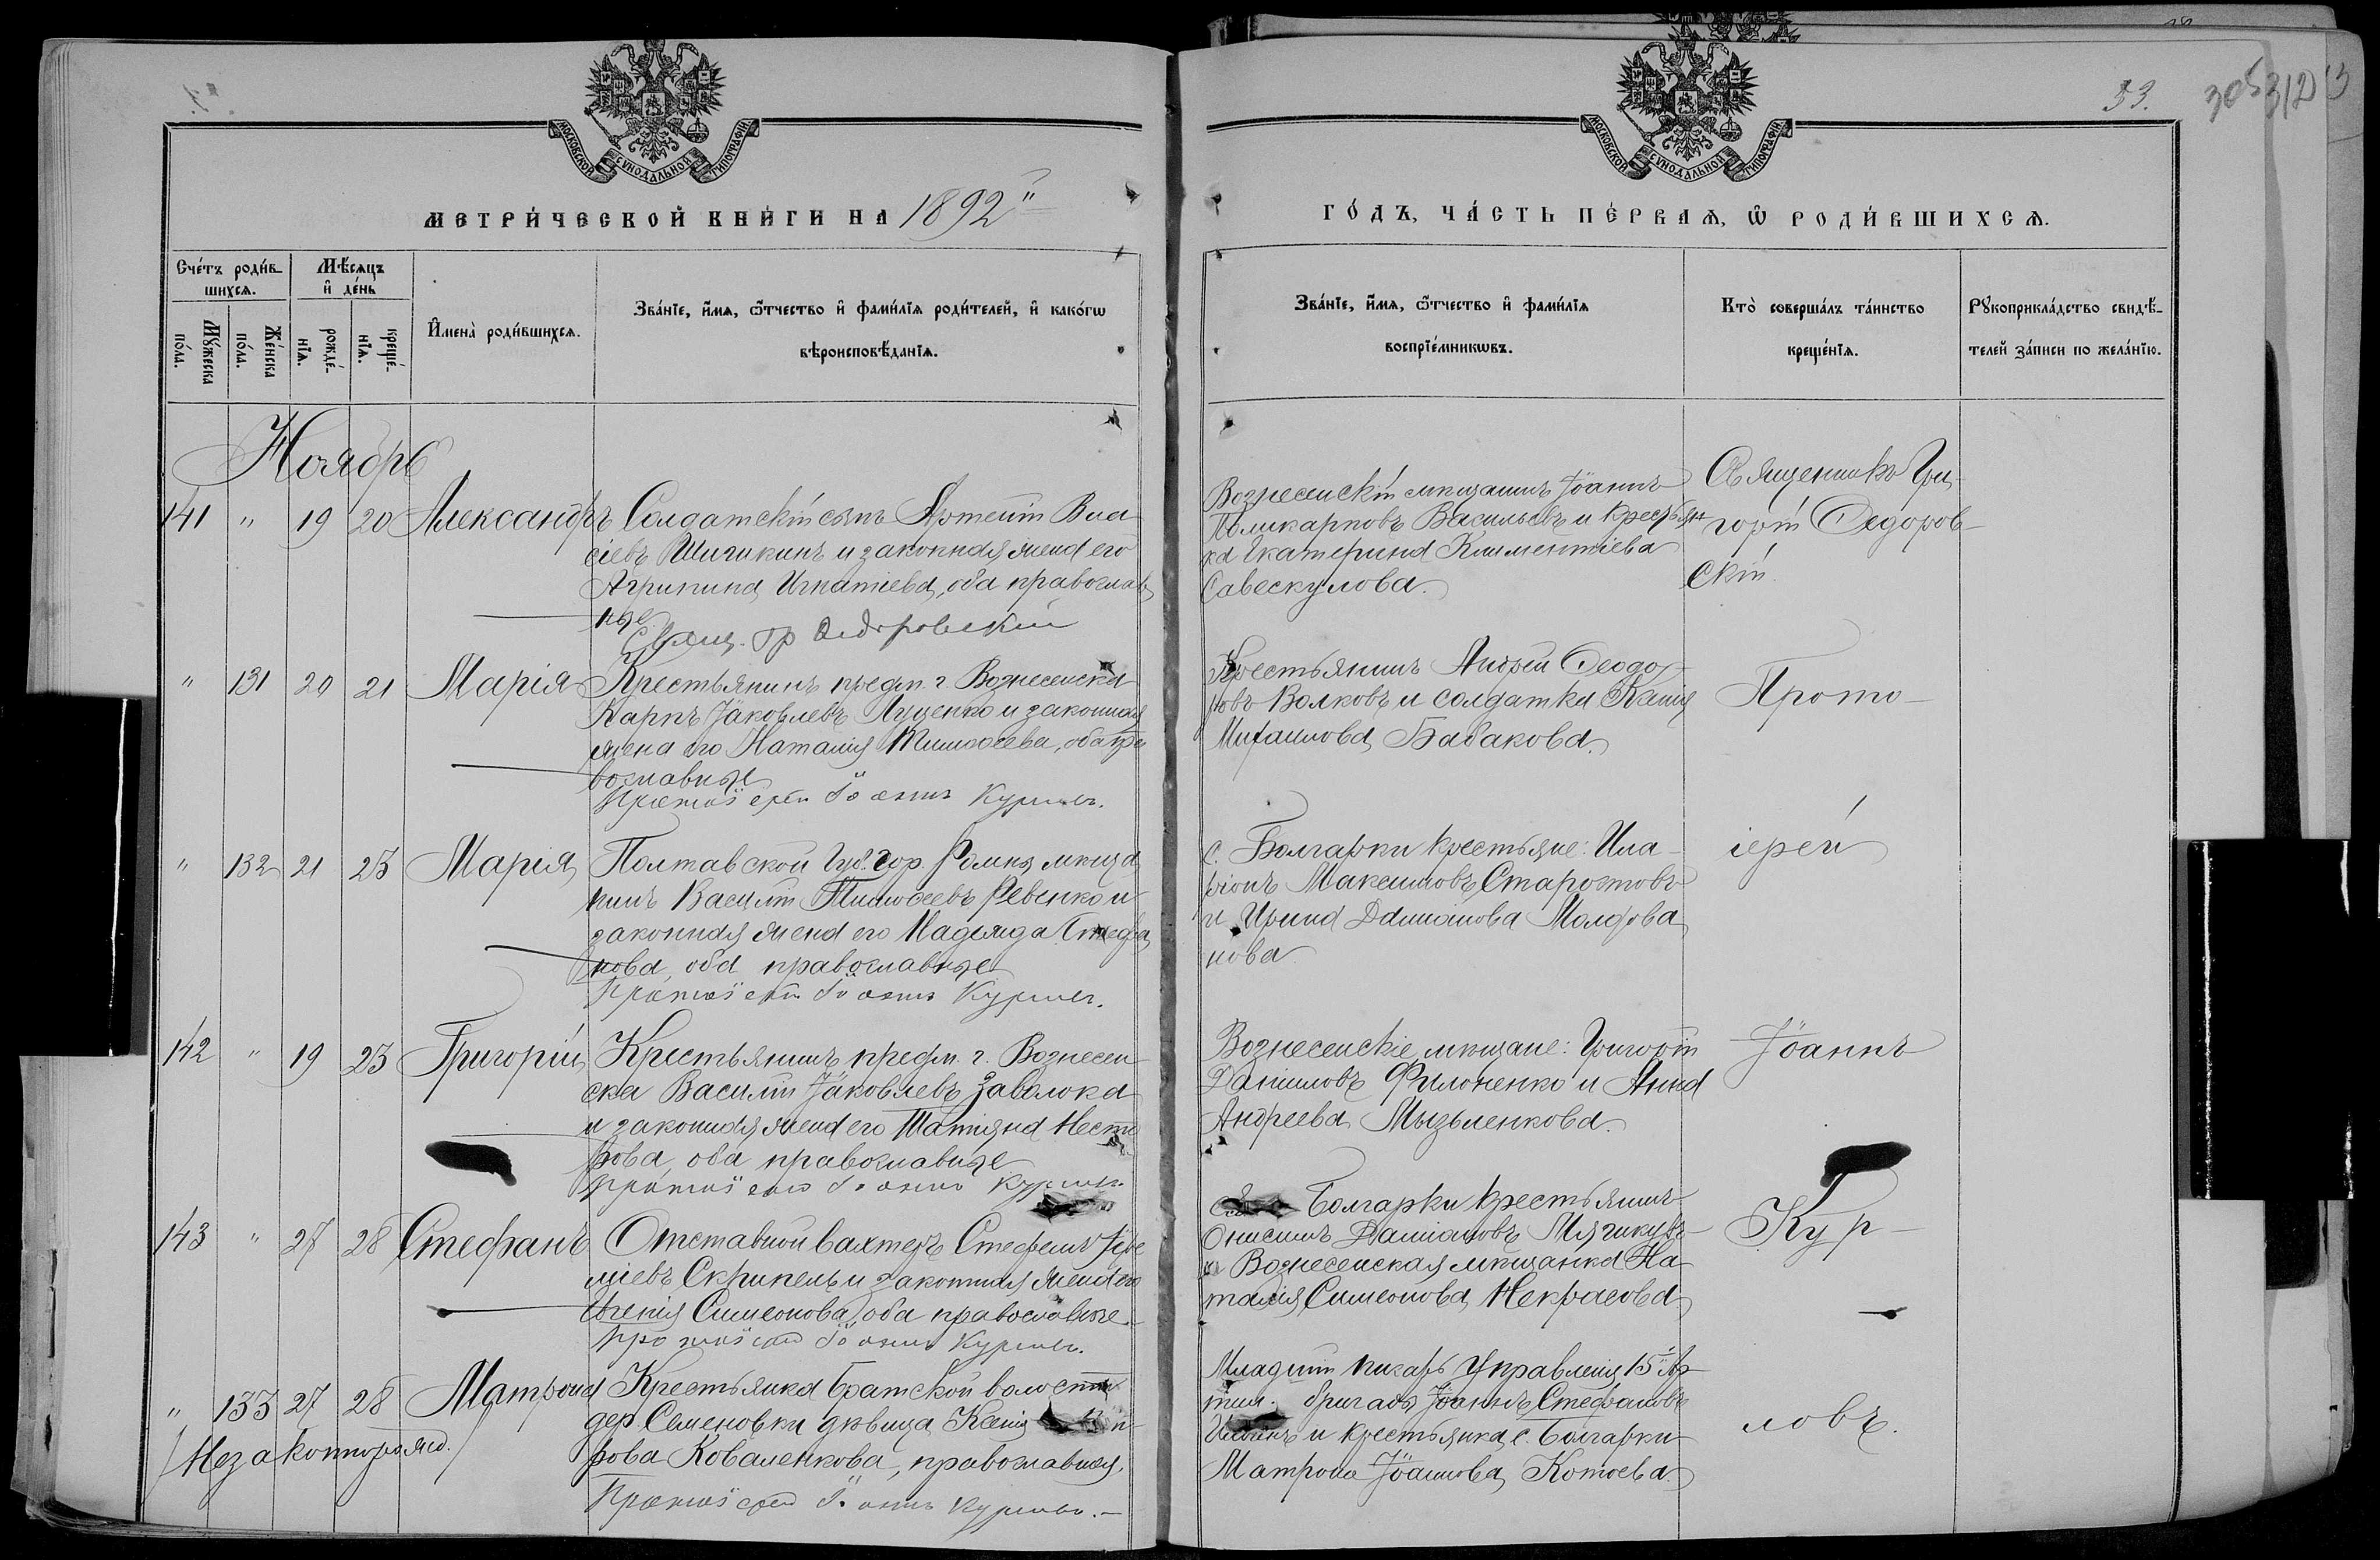 53.
305
312
МОСКОВСКОЙ СУНОДАЛЬНОЙ ТИПОГРАФІИ.
МОСКОВСКОЙ СУНОДАЛЬНОЙ ТИПОГРАФІИ.
МЕТРИ́ЧЕСКОЙ КНИ́ГИ НА 1892
ГО́ДЪ, ЧА́СТЬ ПЕ́РВАѦ, Ѽ РОДИ́ВШИХСѦ.
Сче́тъ роди́в-
шихсѧ.
Мꙋ́жеска по́ла.
Же́нска по́ла.
Мѣ́сѧцъ
и҆ де́нь
рожде́-
нїѧ.
креще́-
нїѧ.
И҆мена̀ роди́вшихсѧ.
Зва́нїе, и҆́мѧ, ѻ҆́тчество и҆ фами́лїѧ роди́телей, и҆ како́гѡ
вѣроисповѣ́данїѧ.
Зва́нїе, и҆́мѧ, ѻ҆́тчество и҆ фами́лїѧ
воспрїе́мникѡвъ.
Кто̀ соверша́лъ та́инство
креще́нїѧ.
Рꙋкоприкла́дство свидѣ́-
телей за́писи по жела́нїю.
Ноябрь
141 " 19 20 Александръ Солдатскій сынъ Артемій Вла-
сіевъ Шишкинъ и законная жена его
Агрипина Игнатіева, оба православ
ные.
Свящ. Гр Федоровскій
Вознесенскій мѣщанинъ Іоаннъ
Поликарповъ Васильевъ и крестьян
ка Екатерина Климентіева
Савескулова.
Священникъ Гри-
горій Федоров-
скій
" 131 20 21 Марія Крестьянинъ предм. г. Вознесенска
Карпъ Іаковлевъ Луценко и законная
жена его Наталія Тимофеева, оба пра
вославные
Протоіерей Іоаннъ Курловъ.
Крестьянинъ Андрей Феодо-
ровъ Волковъ и солдатка Ксенія
Михаилова Бабакова.
Прото-
" 132 21 23 Марія Полтавской губ. гор. Ромны мѣща
нинъ Василій Тимофеевъ Ревенко и
законная жена его Надежда Стефа
нова, оба православные
Протоіерей Іоаннъ Курловъ.
с. Болгарки крестьяне: Ила-
ріонъ Максимовъ Старостовъ
и Ирина Даміанова Молдова
нова
іерей
142 " 19 23 Григорій Крестьянинъ предм. г. Вознесен-
ска Василій Іаковлевъ Заволока
и законная жена его Татіяна Несто
рова, оба православные
Протоіерей Іоаннъ Курловъ.
Вознесенскіе мѣщане: Григорій
Даніиловъ Филоненко и Анна
Андреева Мызыленкова.
Іоаннъ
143 " 27 28 Стефанъ Отставной вахтеръ Стефанъ
міевъ Скрипель и законная жена его
Евгенія Симеонова, оба православные.
Протоіерей Іоаннъ Курловъ.
Болгарки крестьянинъ
Онисимъ Даміановъ
и Вознесенская мѣщанка На-
талія Симеонова Некрасова
Кур-
" 133 27 28 Матрона Крестьянка Братской волости
дер. Семеновки дѣвица Ксенія
рова Коваленкова, православная.
/Незаконнорожд./
Протоіерей Іоаннъ Курловъ.-
Младшій писарь Управленія 15 Ар-
тил. бригады Іоаннъ Стефановъ
и крестьянка с. Болгарки
Матрона Іоаннова Котоева.
ловъ.